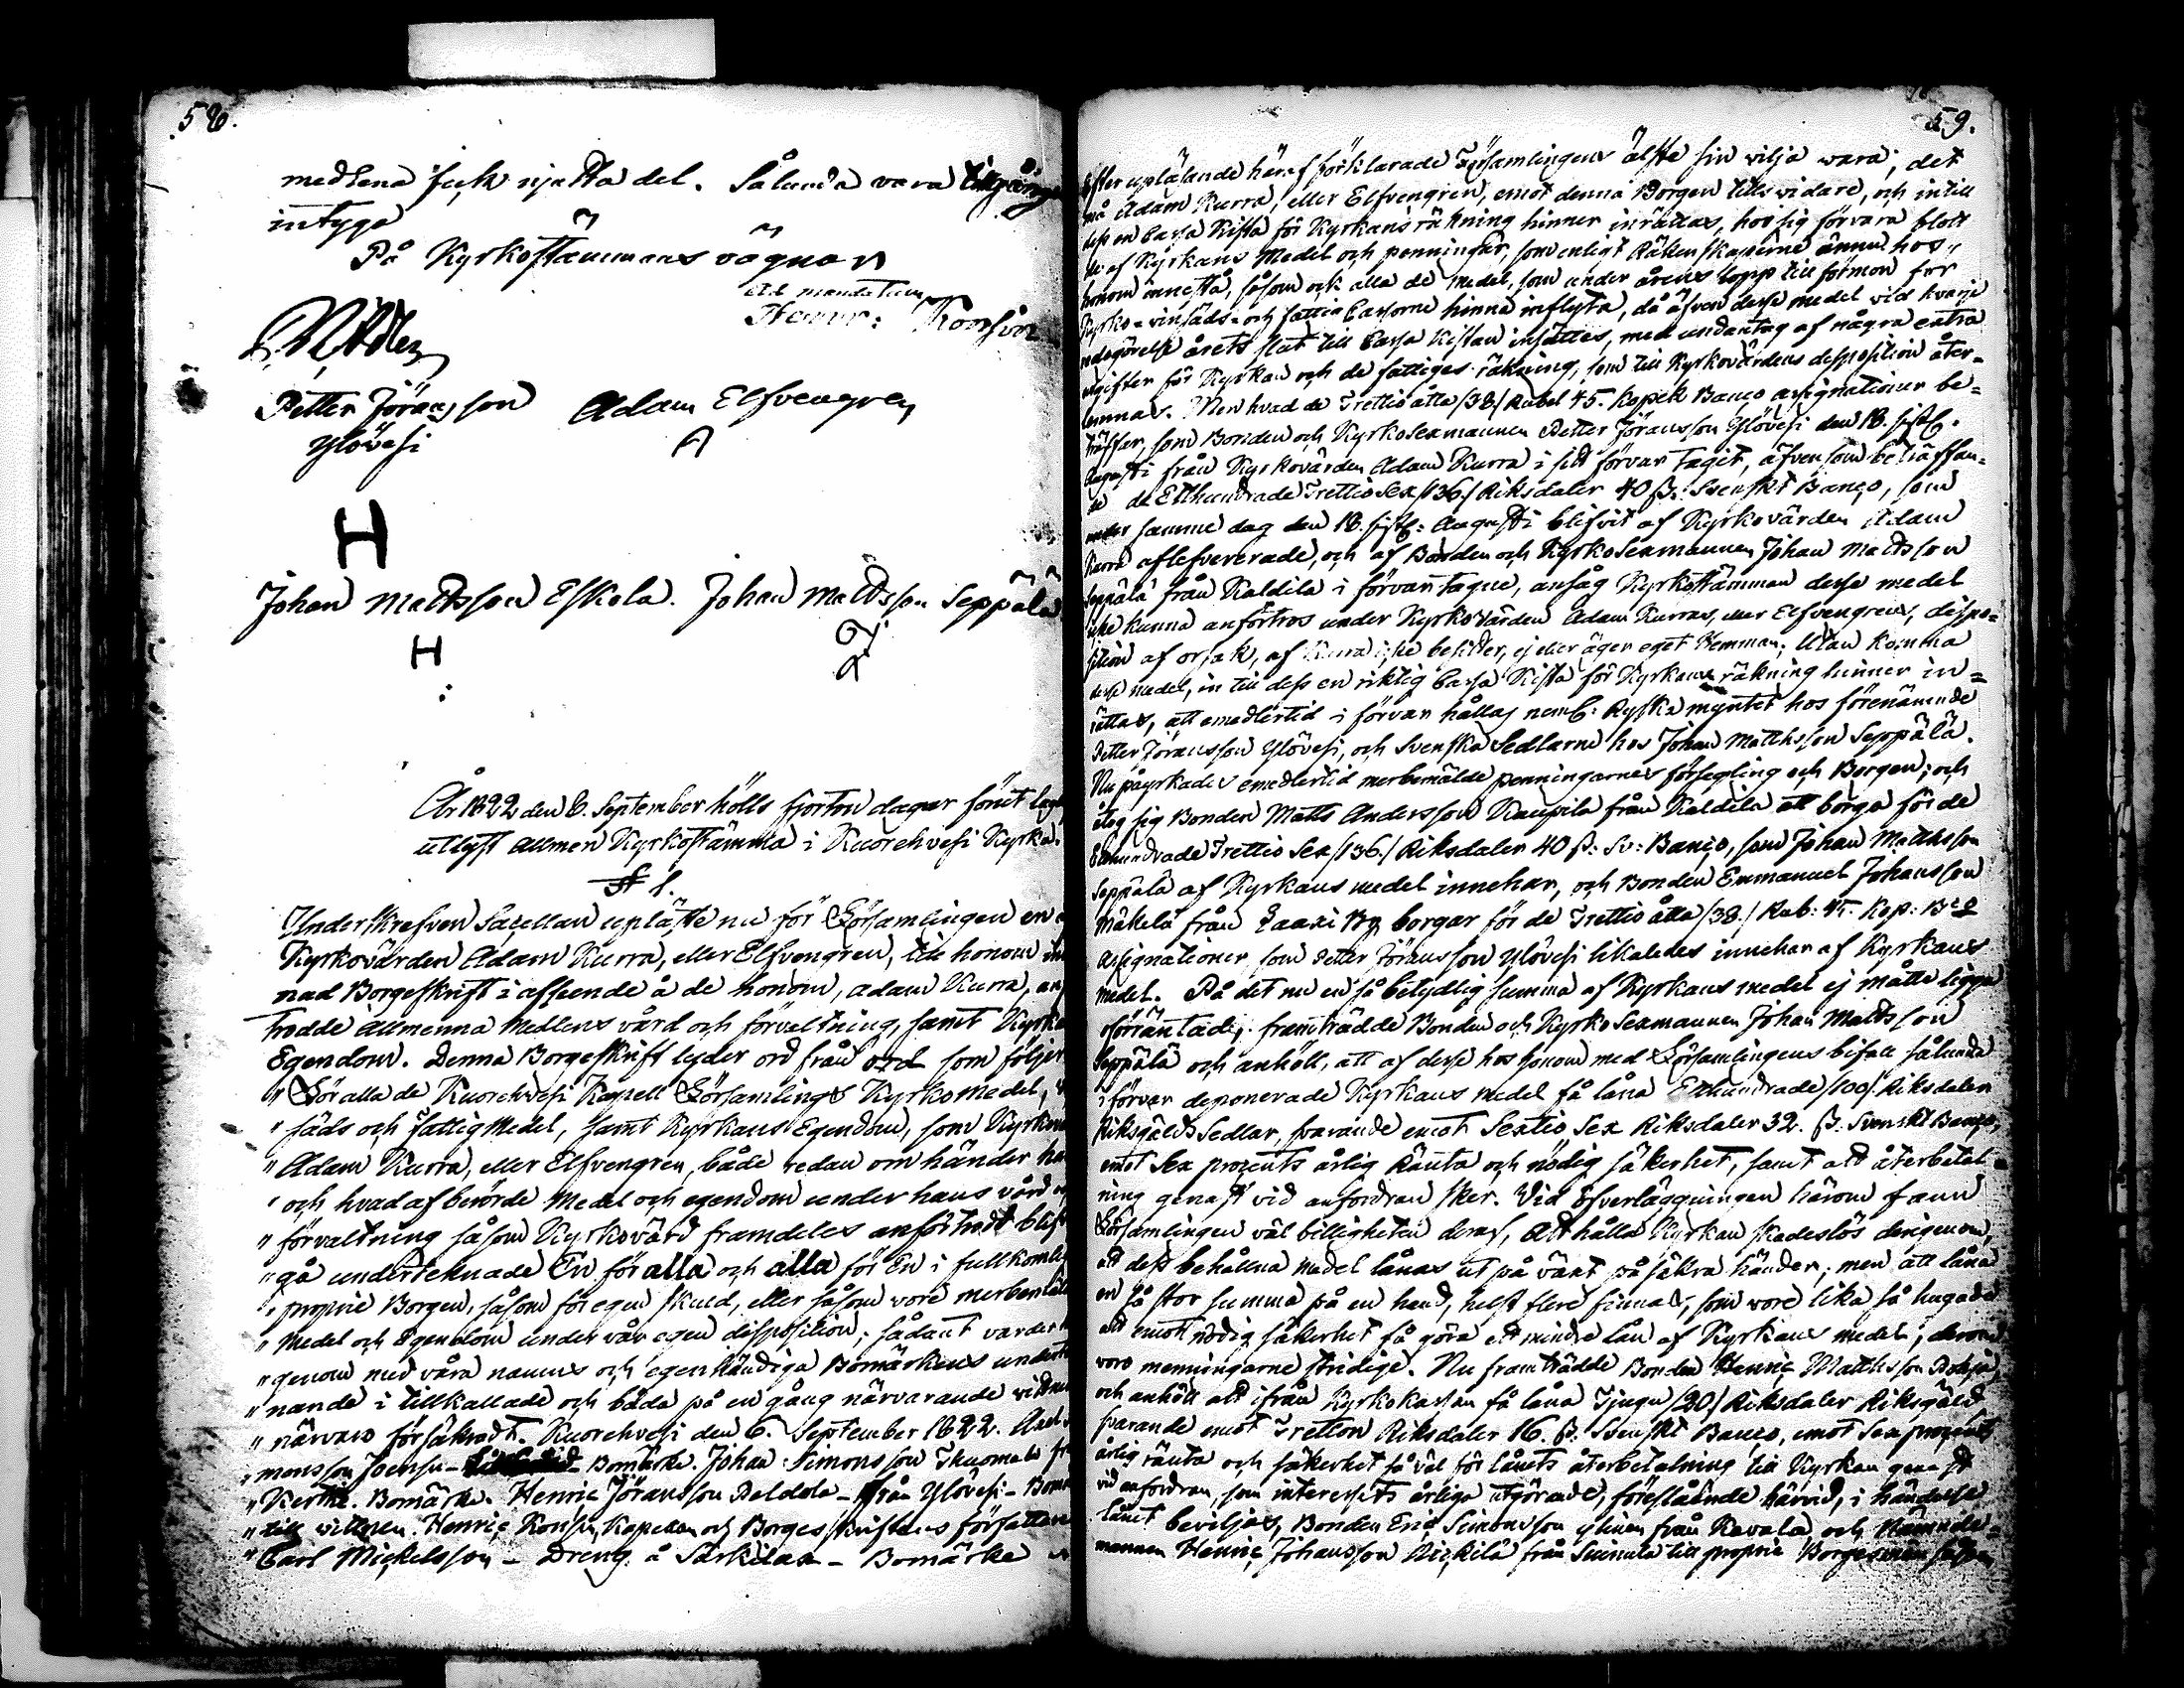 58.
medlena feck njutta del. Sålunda vara tillgånget
intyga
På Kyrkostämmans vägnar
Ad mandatum
Henric: Konsin
Petter Jöransson Adam Elfvengren
Ylövesi
H
Johan Mattsson Eskola. Johan Mattsson Seppälä
H
År 1822 den 8. September hölls fjorton dagar förut
utlyst allmen Kyrkostämma i Kuorehvesi Kyrka.
§ 1.
Underskrefven Sacellan uplästte nu för Församlingen en
Kyrkovärden Adam Kurra, eller Elfvengren, till honom
nad Borgeskrift i afseende å de honom, Adam Kurra, an
trodde Allmenna Medlens vård och förvaltning, samt Kyrko
Egendom. Denna Borgeskrift lyder ord från ord som följer
" För alla de Kuorehvesi Kapell Församlings Kyrko medel,
" säds och fattig Medel, samt Kyrkans Egendom, som Kyrkov
" Adam Kurra, eller Elfvengren, både redan om händer ha
" och hvad af berörde Medel och egendom under hans vård
" förvaltning såsom Kyrkovärd framdeles anförtrodt blif
" gå underteknade En för alla och alla för En i fullkomlig
" proprie Borgen, såsom för egen skuld, eller såsom vore
" Medel och Egendom under vår egen disposition; sådant varder
" genom med våra namns och egenhändiga Bomärkens underte
" nande i tillkallade och båda på en gång närvarande vittnen
" närvaro försäkradt. Kuorehvesi den 6. September 1822.
" mansson Joensu - Bomärke. Johan Simonsson
" Kerttu. Bomärke. Henric Jöransson från Ylövesi - Bomä
" till vittnen. Henric Konsin, Kapellan och Borges skriftens författare
" Carl Mickelsson - Dreng å Särkilax - Bomärke
59.
Efter upläsande häraf förklarade Församlingens älste sin vilja vara; det
må Adam Kurra, eller Elfvengren, emot denna Borgen tills vidare, och intill
dess en Cassa Kista för Kyrkans räkning hinner inrättas, hos sig förvara blott
de af Kyrkans Medel och penningar, som enligt Räkenskaperne ännu hos
honom innestå, såsom ock alla de Medel, som under årens lopp till förmon för
Kyrko- vin säds- och fattig Cassorne hinna inflyta, då äfven desse medel vid hvarje
redogörelse årets slut till Cassa Kistan insättes, med undantag af några extra
utgifter för Kyrkan och de fattiges räkning, som till Kyrkovärdens disposition åter-
lemnas. Men hvad de Trettio åtta /38./ Rubel 45. Kopek Banco assignationer be-
träffar, som Bonden och Kyrko Sexmannen Petter Jöransson Ylövesi den 18. sistl.
Augusti från Kyrkovärden Adam Kurra i sitt förvar tagit, äfvensom beträffan-
de de Etthundrade Trettio Sex /136./ Riksdaler 40 ß. Svenskt Banco, som
under samme dag den 18. sistl: Augusti blifvit af Kyrkovärden Adam
Kurra aflefvererade, och af Bonden och Kyrko Sexmannen Johan Mattsson
Seppälä från Kaldila i förvar tagne, ansåg Kyrkostämman desse medel
icke kunna anförtros under Kyrkovärden Adam Kurras, eller Elfvengrens, dispo-
sition af orsak, af Kurra icke besitter, ej eller äger eget Hemman; Utan komma
desse medel, in till dess en riktig Cassa Kista för Kyrkans räkning hinner in-
rättas, att emedlertid i förvar hållas neml: Ryska myntet hos förenämnde
Petter Jöransson Ylövesi, och Svenska Sedlarne hos Johan Matthsson Seppälä.
Nu påyrkades emedlertid merbemälde penningarnes försegling och Borgen; och
åtog sig Bonden Matts Andersson Kaupila från Kaldila att borga för de
Etthundrade Trettio Sex /136./ Riksdaler 40 ß: Sv: Banco, som Johan Matthsson
Seppälä af Kyrkans medel innehar, och Bonden Emmanuel Johansson
Mäkelä från Laaxi By borgar för de Trettio åtta /38./ Rub: 45. Kop: Bco
Assignationer, som Petter Jöransson Ylövesi likaledes innehar af Kyrkans
medel. På det nu en så betydlig summa af Kyrkans medel ej måtte ligga
oförräntade; framträdde Bonden och Kyrko Sexmannen Johan Mattsson
Seppälä och anhöll, att af desse hos honom med Församlingens bifall sålunda
i förvar deponerade Kyrkans medel få låna Etthundrade /100/. Riksdaler
Riksgälds Sedlar, svarande emot Sextio Sex Riksdaler 32. ß. Svenskt Banco,
emot Sex procents årlig Ränta och nödig säkerhet, samt att återbetal-
ning genast vid anfordran sker. Vid öfverläggningen härom fann
Församlingen väl billigheten deraf, att hålla Kyrkan skadeslös derigenom,
att dess behållna medel lånas ut på växt på säkra händer; men att låna
en så stor summa på en hand, helst flere finnas, som vore lika så hugade
att emot nödig säkerhet få göra ett mindre lån af Kyrkans medel; derom
voro menningarne stridige. Nu framträdde Bonden Henric Matthsson
och anhöll att ifrån Kyrkokassan få låna Tjugu /20/ Riksdaler Riksgäld
svarande emot Tretton Riksdaler 16. ß. Svenskt Banco, emot Sex procents
årlig ränta och säkerhet så väl för lånets återbetalning till Kyrkan genast
vid anfordran, som interessets årliga utgörande, föreslående härvid, i händelse
lånet beviljas, Bonden Eric Simonsson Ylinen från Kavala och Nämnde-
mannen Henric Johansson Nickilä från Suinula till proprie Borgesmän